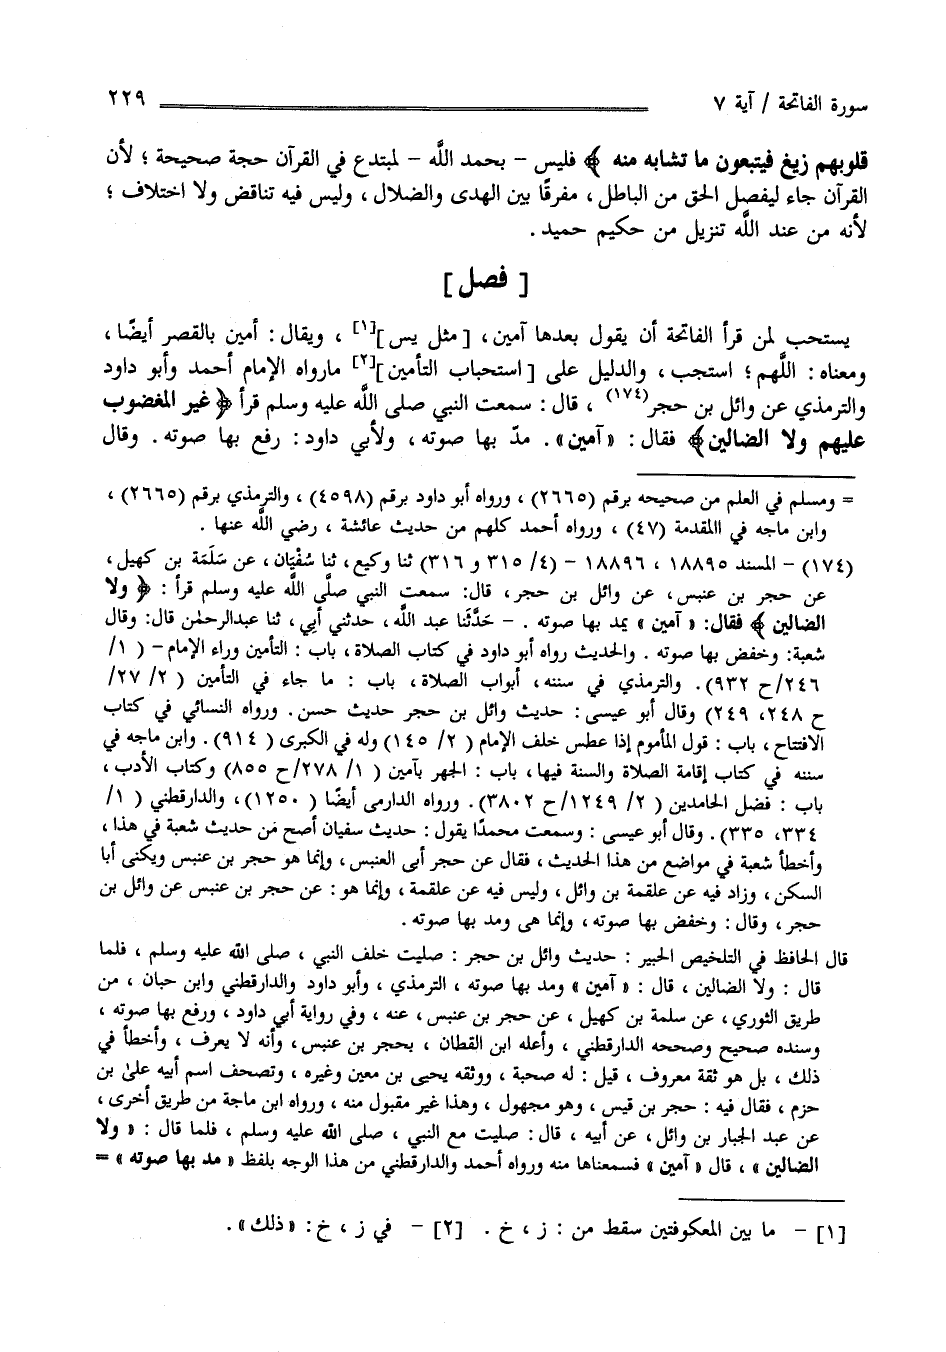 سورة الفاتحة / آية ٧ ٢٢٩
قلوبهم زيغ فيتبعون ما تشابه منه ﴾ فليس – بحمد اللَّه – لمبتدع في القرآن حجة صحيحة ؛ لأن
القرآن جاء ليفصل الحق من الباطل ، مفرقًا بين الهدى والضلال ، وليس فيه تناقض ولا اختلاف ؛
لأنه من عند اللَّه تنزيل من حكيم حميد .
[ فصل ]
يستحب لمن قرأ الفاتحة أن يقول بعدها آمين ، [ مثل يس ][١] ، ويقال : أمين بالقصر أيضًا ،
ومعناه : اللَّهم ؛ استجب ، والدليل على [ استحباب التأمين ][٢] مارواه الإمام أحمد وأبو داود
والترمذي عن وائل بن حجر(١٧٤) ، قال : سمعت النبي صلى اللَّه عليه وسلم قرأ ﴿ غير المغضوب
عليهم ولا الضالين﴾ فقال : « آمين » . مدّ بها صوته ، ولأبي داود : رفع بها صوته . وقال
= ومسلم في العلم من صحيحه برقم (٢٦٦٥) ، ورواه أبو داود برقم (٤٥٩٨) ، والترمذي برقم (٢٦٦٥) ،
وابن ماجه في االمقدمة (٤٧) ، ورواه أحمد كلهم من حديث عائشة ، رضي اللَّه عنها .
(١٧٤) – المسند ١٨٨٩٥ ، ١٨٨٩٦ – (٤/ ٣١٥ و ٣١٦) ثنا وكيع، ثنا سُفْيَان، عن سَلَمَة بن كهيل ،
عن حجر بن عنبس، عن وائل بن حجر، قال: سمعت النبي صلَّى اللَّه عليه وسلم قرأ : ﴿ ولا
الضالين ﴾ فقال: « آمين » يمد بها صوته . – حَدَّثَنا عبد اللَّه ، حدثني أبِي ، ثنا عبدالرحمٰن قال: وقال
شعبة: وخفض بها صوته . والحديث رواه أبو داود في كتاب الصلاة ، باب : التأمين وراء الإمام – ( ١/
٢٤٦/ح ٩٣٢). والترمذي في سننه، أبواب الصلاة، باب : ما جاء في التأمين ( ٢/ ٢٧/
ح ٢٤٨، ٢٤٩) وقال أبو عيسى : حديث وائل بن حجر حديث حسن . ورواه النسائي في كتاب
الافتتاح ، باب : قول المأموم إذا عطس خلف الإمام ( ٢/ ١٤٥) وله في الكبرى ( ٩١٤) . وابن ماجه في
سننه في كتاب إقامة الصلاة والسنة فيها، باب : الجهر بآمين ( ١/ ٢٧٨/ح ٨٥٥) وكتاب الأدب ،
باب : فضل الحامدين ( ٢/ ١٢٤٩/ح ٣٨٠٢). ورواه الدارمى أيضًا ( ١٢٥٠)، والدارقطني ( ١/
٣٣٤، ٣٣٥). وقال أبو عيسى : وسمعت محمدًا يقول : حديث سفيان أصح من حديث شعبة في هذا ،
وأخطأ شعبة في مواضع من هذا الحديث ، فقال عن حجر أبى العنبس ، وإنما هو حجر بن عنبس ويكنى أبا
السكن ، وزاد فيه عن علقمة بن وائل ، وليس فيه عن علقمة ، وإنما هو : عن حجر بن عنبس عن وائل بن
حجر ، وقال : وخفض بها صوته ، وإنما هى ومد بها صوته .
قال الحافظ في التلخيص الحبير : حديث وائل بن حجر : صليت خلف النبي ، صلى الله عليه وسلم ، فلما
قال : ولا الضالين ، قال : « آمين » ومد بها صوته ، الترمذي ، وأبو داود والدارقطني وابن حبان ، من
طريق الثوري ، عن سلمة بن كهيل ، عن حجر بن عنبس ، عنه ، وفي رواية أبي داود ، ورفع بها صوته ،
وسنده صحيح وصححه الدارقطني ، وأعله ابن القطان ، بحجر بن عنبس ، وأنه لا يعرف ، وأخطأ في
ذلك ، بل هو ثقة معروف ، قيل : له صحبة ، ووثقه يحيى بن معين وغيره ، وتصحف اسم أبيه علىٰ بن
حزم ، فقال فيه : حجر بن قيس ، وهو مجهول ، وهذا غير مقبول منه ، ورواه ابن ماجة من طريق أخرى ،
عن عبد الجبار بن وائل ، عن أبيه ، قال : صليت مع النبي ، صلى الله عليه وسلم ، فلما قال : « ولا
الضالين » ، قال « آمين » فسمعناها منه ورواه أحمد والدارقطني من هذا الوجه بلفظ « مد بها صوته » =
[١] – ما بين المعكوفتين سقط من : ز ، خ . [٢] – في ز ، خ : « ذلك » .